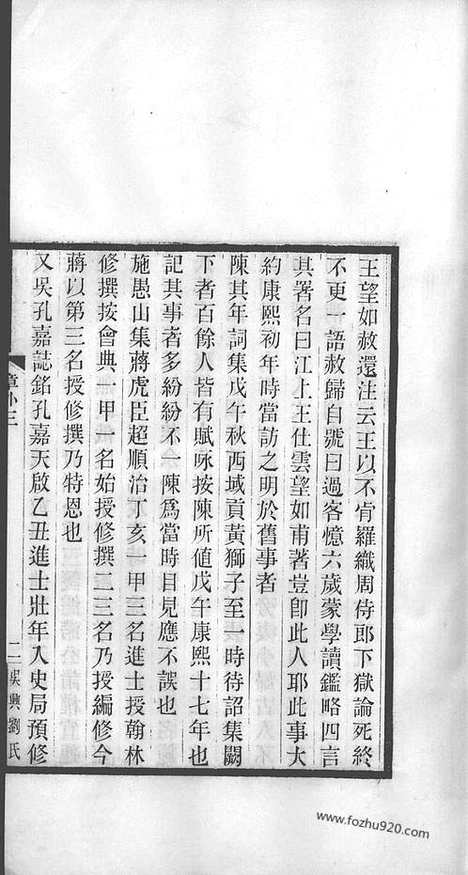 王望如赦還注云王以不肯羅織周侍郎下獄論死終
不更一語赦歸自號曰過客憶六歲蒙學讀鑑略四言
其著名曰江上王仕雲望如甫著豈卽此人耶此事大
約康熙初年時當訪之明於舊事者
陳其年詞集戊午秋西域貢黃獅子至一時待詔集闕
下者百餘人皆有賦咏按陳所値戊午康熙十七年也
記其事者多紛紛不一陳爲當時目見應不誤也
施愚山集蔣虎臣超順治丁亥一甲三名進士授翰林
修撰按會典一甲一名始授修撰二三名乃授編修今
蔣以第三名授修撰乃特恩也
又吳孔嘉誌銘孔嘉天啟乙丑進士壯年入史局預修
章外三
二
吳興劉氏
www.fozhu920.com